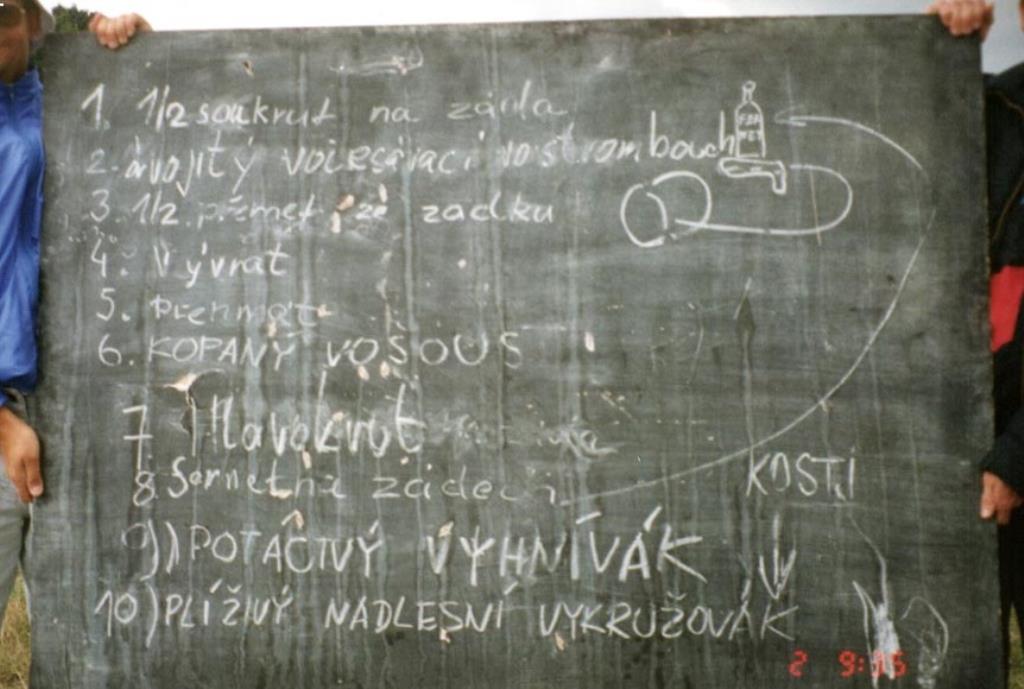 1. 1/2 soukrut na záda
2. dvojitý vo strombach
3. 1/2 přemet ze zadku
4. Vývrat
5. Přehmat
6. KOPANÝ VOSOUS
7 Hlavokrut
8.
KOSTI
9)) POTÁČIVÝ VYHNÍVÁK
10) PLÍŽIVÝ NADLESNÍ VYKRUŽOVÁK
2 9:35